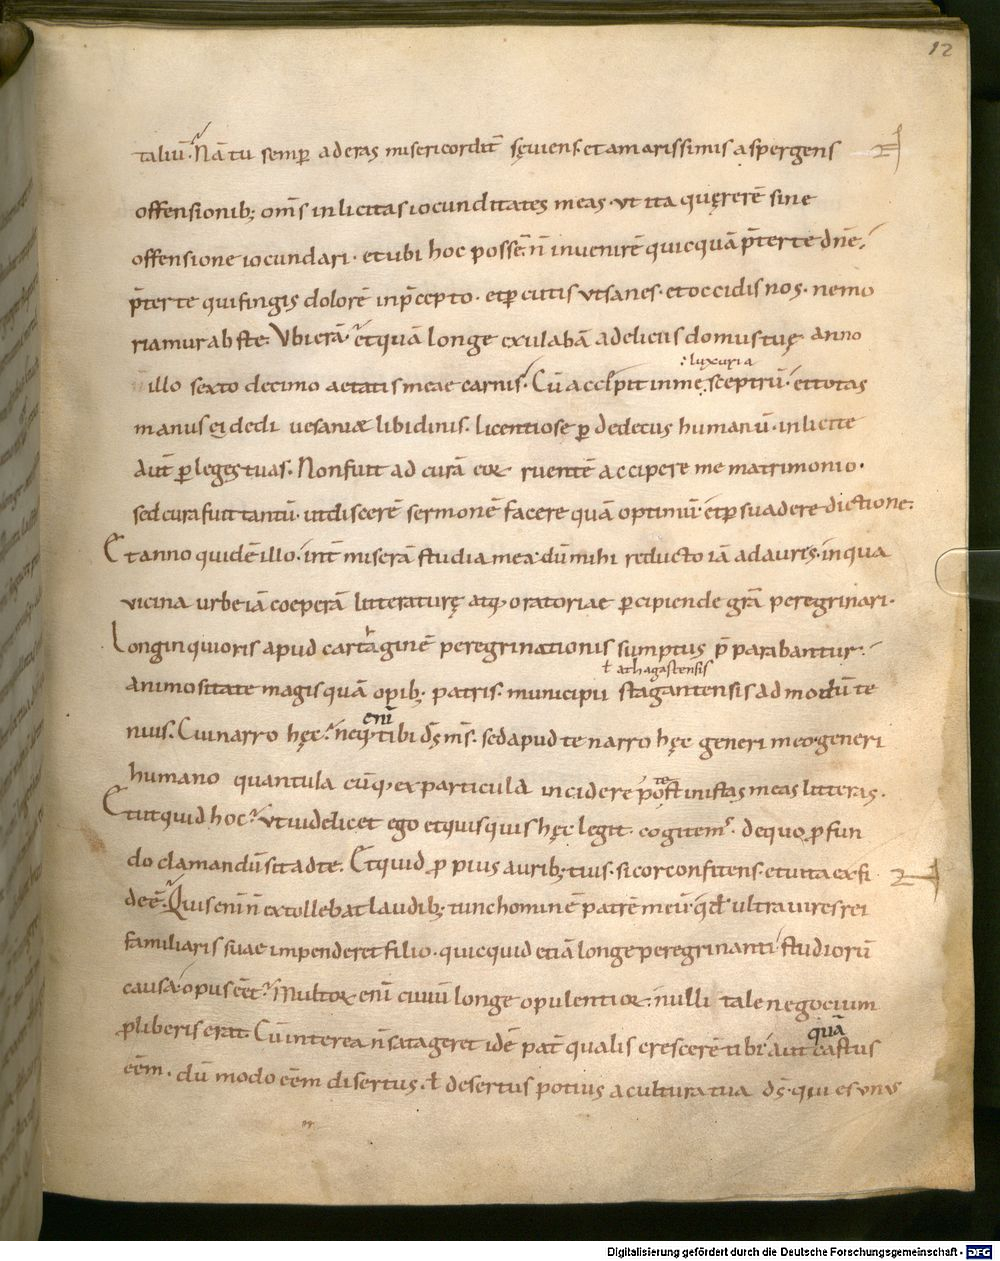 12
taliū. Nā tu semp aderas misericordit̄ sęviens. et amarissimis aspergens
offensionib; om̄s inlicitas iocunditates meas. ut ita quęrerē sine
offensione iocundari. et ubi hoc possē. n̄ invenirē quicquā p̄ter te dn̄e.
p̄ter te qui fingis dolorē in p̄cepto. et pcutis ut sanes. et occidis nos. nemo
riamur ab ste. Ubi erā et quā longe exulabā a deliciis domus tuę anno
illo sexto decimo aetatis meae carnis. Cū accēpit in me sceptrū. et totas
: luxuria
manus ei dedi vesaniæ libidinis. licentiose p dedecus humanū. inlicite
aut̄ p leges tuas. Non fuit ad curā eoꝝ ruentē accipere me matrimonio.
sed cura fuit tantū. ut discerē sermonē facere quā optimū. et psuadere dictione.
Et anno quidē illo. int̄ miserā studia mea. dū mihi reducto iā adauris. in qua
vicina urbe iā coeperā litteraturę atq; oratoriae pcipiende grā peregrinari.
Longinquioris apud cartaginē peregrinationis sumptus p̄parabantur.
ł athagastensis
animositate magis quā opib; patris. municipii stagantensis admodū te
nuis. Cui narro hęc. neq; enī tibi ds̄ ms̄. sed apud te narro hęc generi meo. generi
humano quantula cūq; ex particula incidere potest in istas meas litteras.
Et ut quid hoc. Ut videlicet ego et quisquis hęc legit. cogitem. de quo pfun
do clamandū sit ad te. Et quid ppius aurib; tuis. si cor confitens. et vita ex fi
de ē. Quis enī n̄ extollebat laudib; tunc hominē patrē meū. qđ ultra vires rei
familiaris suae impenderet filio. quicquid etiā longe peregrinanti studiorū
causa opus ēēt. Multoꝝ enī civiū longe opulentioꝝ. nulli tale negocium
p liberis erat. Cū interea n̄ satageret idē pat̄ qualis crescerē tibi. aut quā castus
eēm. dū modo eēm disertus. ł desertus potius a cultura tua ds̄. qui es unus
Digitalisierung gefördert durch die Deutsche Forschungsgemeinschaft - DFG